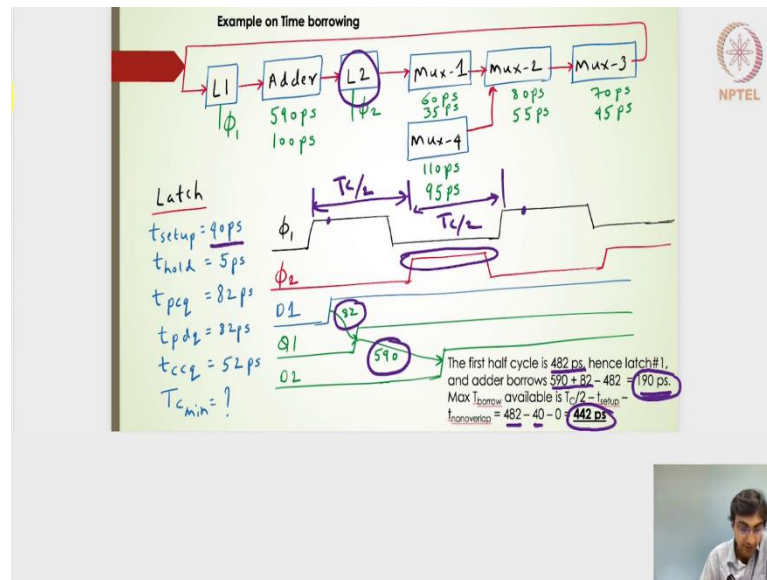 Example on Time borrowing
NPTEL
L1
Adder
L2
Mux-1
Mux-2
Mux-3
ϕ1
590ps
100ps
ϕ2
60ps
35ps
80ps
55ps
70ps
45ps
Mux-4
110ps
95ps
Latch
tsetup = 40ps
thold = 5ps
tpcq = 82ps
tpdq = 82ps
tccq = 52ps
Tcmin = ?
Tc/2
Tc/2
ϕ1
ϕ2
D1
82
Q1
590
D2
The first half cycle is 482 ps, hence latch#1,
and adder borrows 590 + 82 – 482 = 190 ps.
Max Tborrow available is TC/2 – tsetup –
tnonoverlap = 482 – 40 – 0 = 442 ps